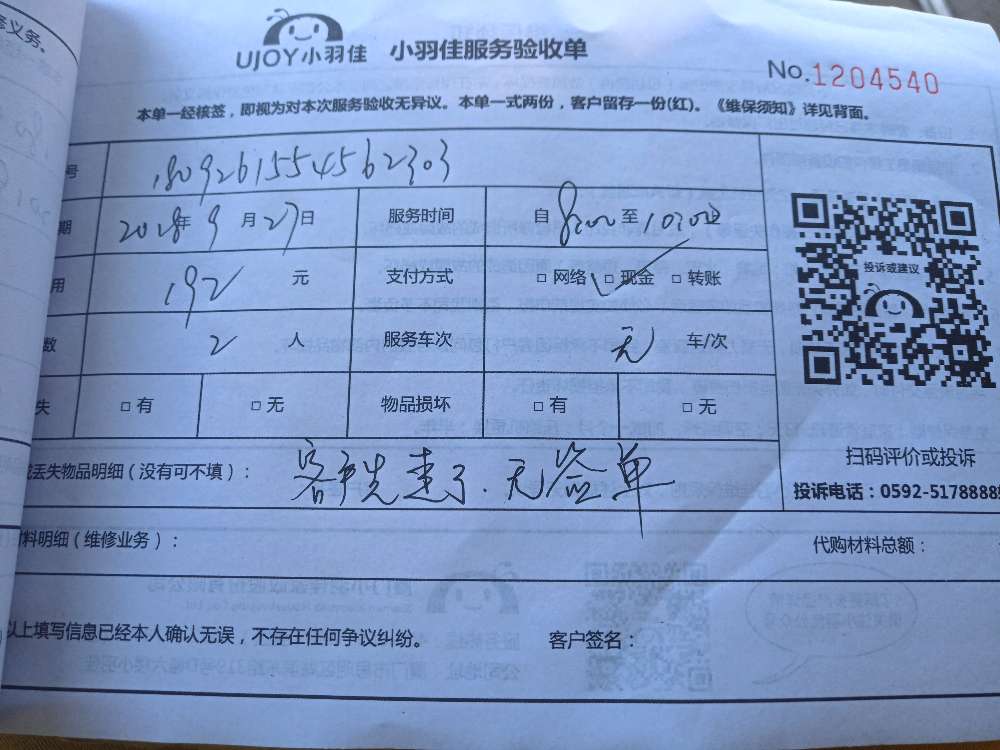 修义务。
UJOY小羽佳 小羽佳服务验收单
No.1204540
本单一经核签，即视为对本次服务验收无异议。本单一式两份，客户留存一份(红)。《维保须知》详见背面。
号 1809261554562303
期 2018年9月27日 服务时间 自8:00至10:00
用 192元 支付方式 □网络 □现金 □转账
数 2人 服务车次 无 车/次
失 □有 □无 物品损坏 □有 □无
投诉或建议
扫码评价或投诉
投诉电话：0592-5178888
或丢失物品明细（没有可不填）： 客户先走了.无签单
料明细（维修业务）： 代购材料总额：
以上填写信息已经本人确认无误，不存在任何争议纠纷。 客户签名：